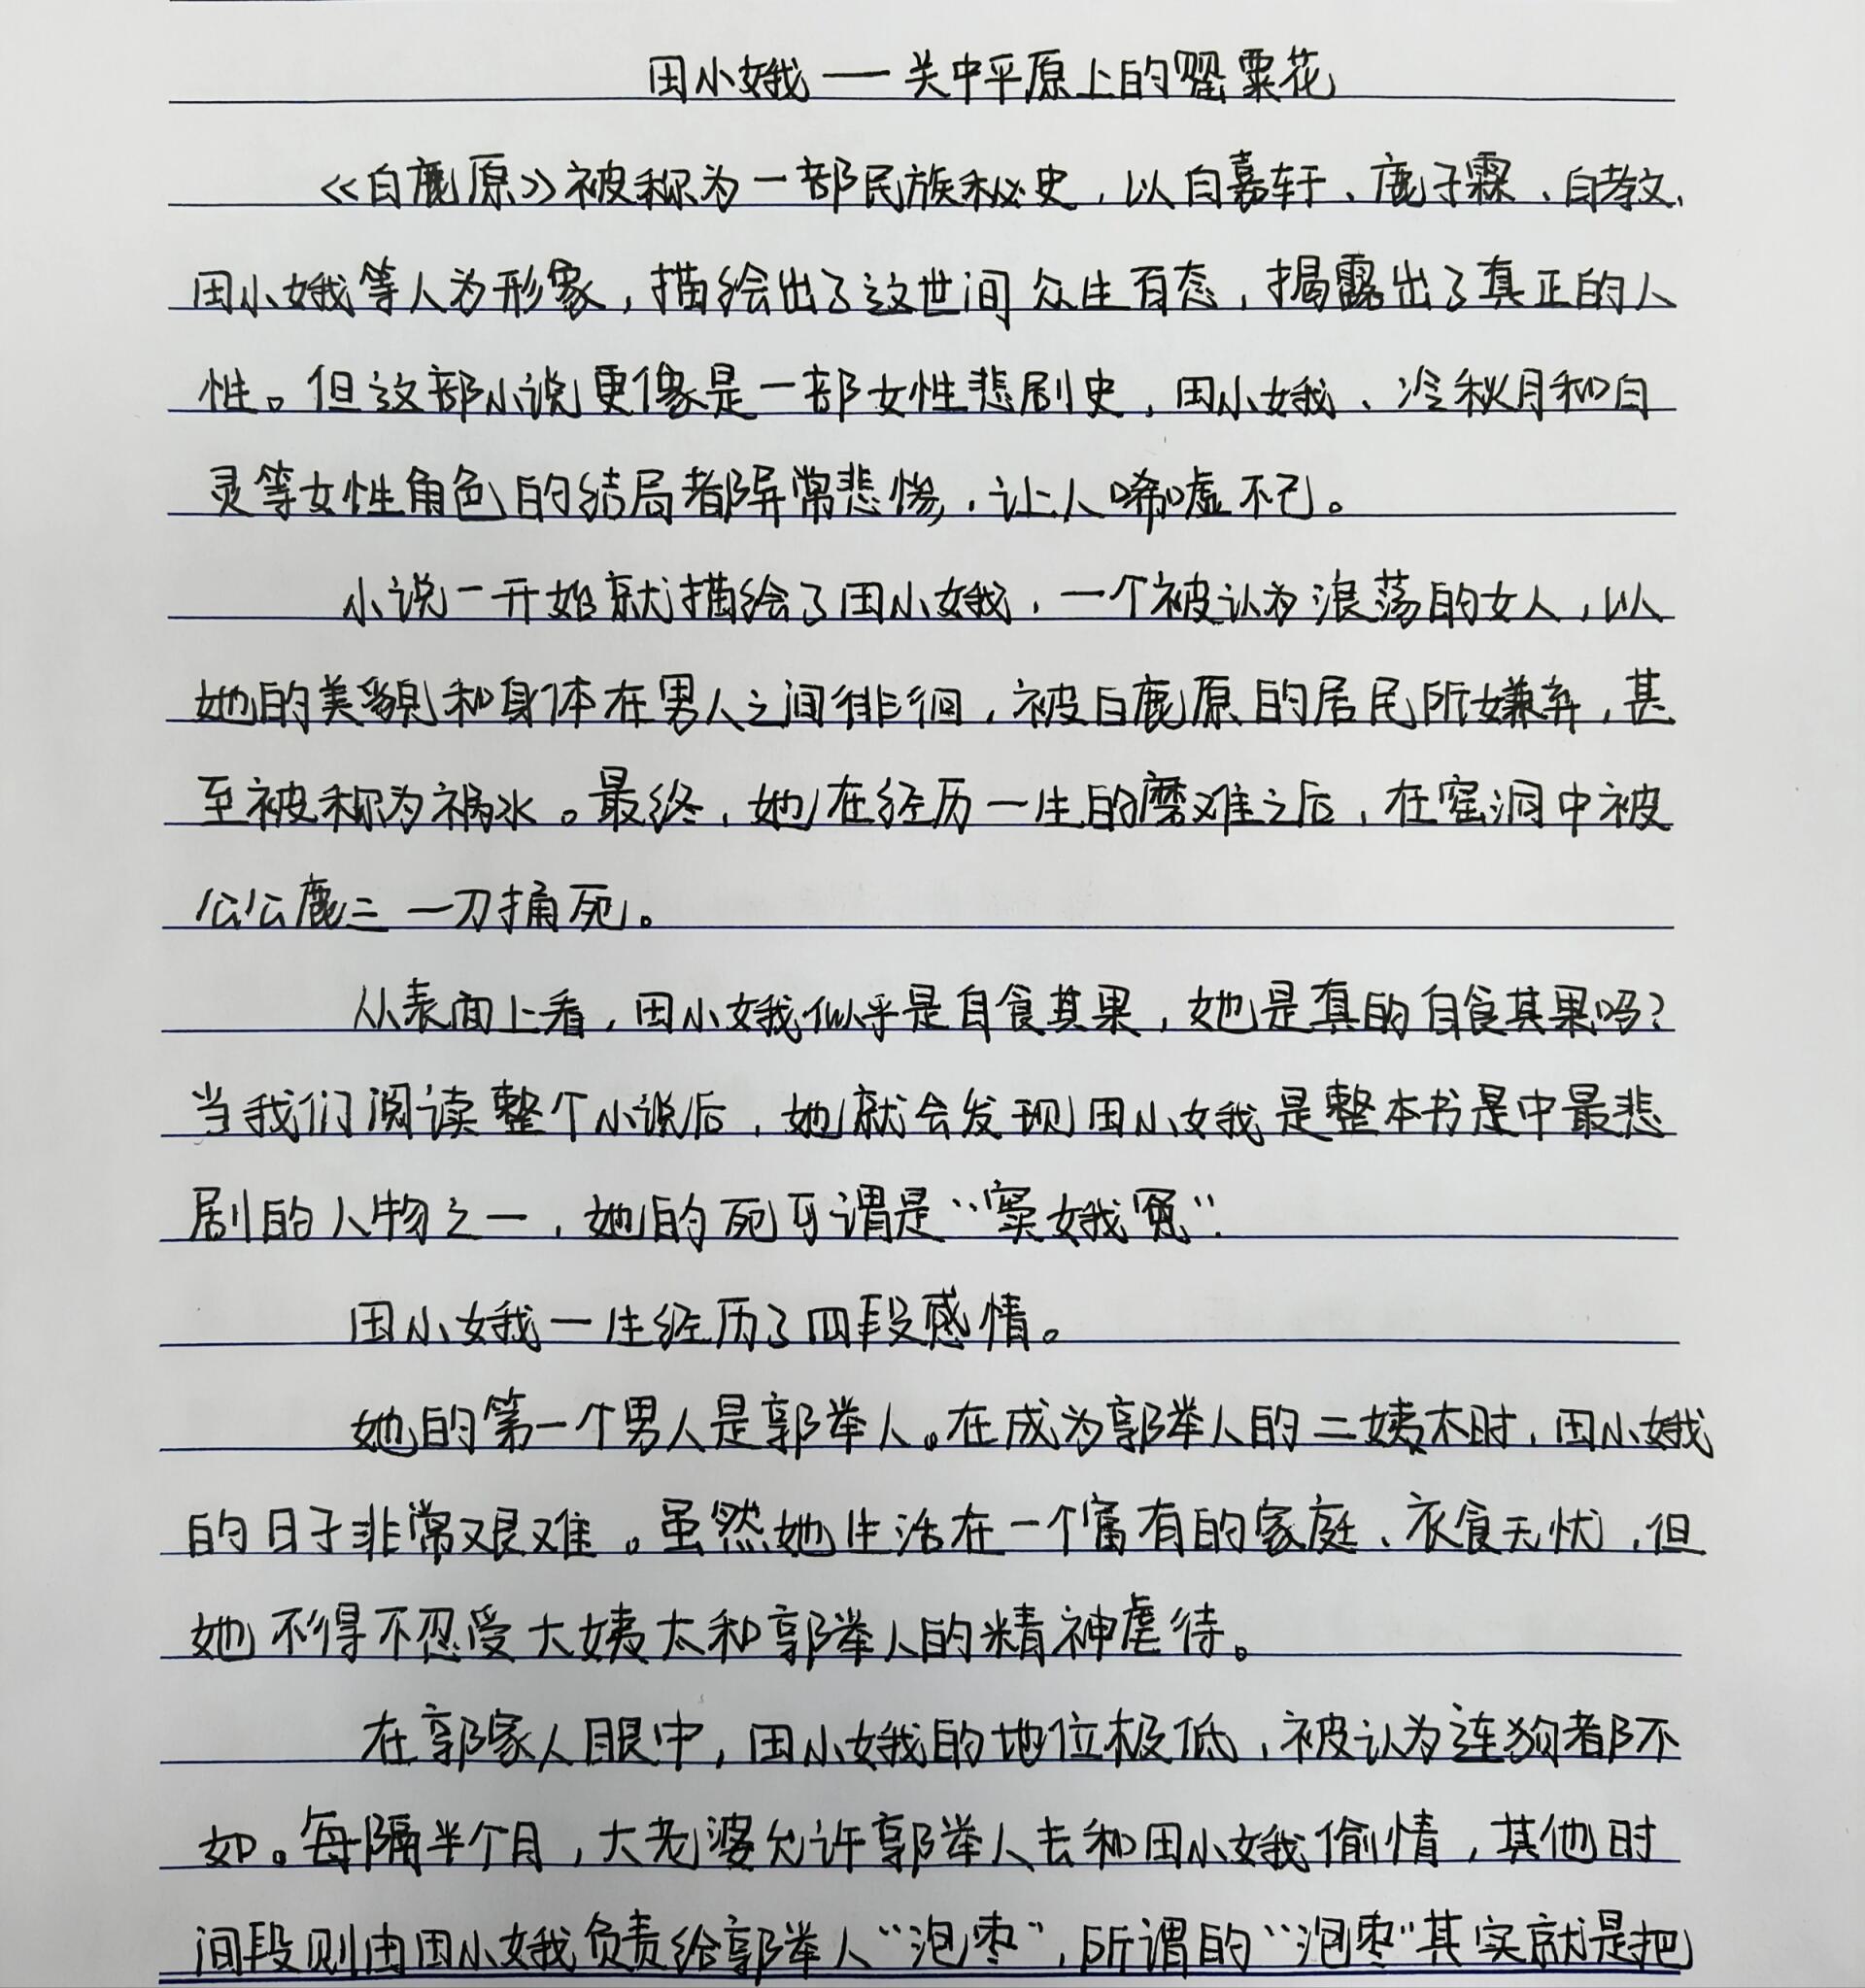 田小娥——关中平原上的罂粟花
《白鹿原》被称为一部民族秘史，以白嘉轩、鹿子霖、白孝文、
田小娥等人为形象，描绘出了这世间众生百态，揭露出了真正的人
性。但这部小说更像是一部女性悲剧史，田小娥、冷秋月和白
灵等女性角色的结局都异常悲惨，让人唏嘘不已。
小说一开始就描绘了田小娥，一个被认为浪荡的女人，以
她的美貌和身体在男人之间徘徊，被白鹿原的居民所嫌弃，甚
至被称为祸水。最终，她在经历一生的磨难之后，在窑洞中被
公公鹿三一刀捅死。
从表面上看，田小娥似乎是自食其果，她是真的自食其果吗？
当我们阅读整个小说后，她就会发现田小娥是整本书是中最悲
剧的人物之一，她的死可谓是“窦娥冤”.
田小娥一生经历了四段感情。
她的第一个男人是郭举人。在成为郭举人的二姨太时，田小娥
的日子非常艰难。虽然她生活在一个富有的家庭、衣食无忧，但
她不得不忍受大姨太和郭举人的精神虐待。
在郭家人眼中，田小娥的地位极低，被认为连狗都不
如。每隔半个月，大老婆允许郭举人去和田小娥偷情，其他时
间段则由田小娥负责给郭举人“泡枣”，所谓的“泡枣”其实就是把